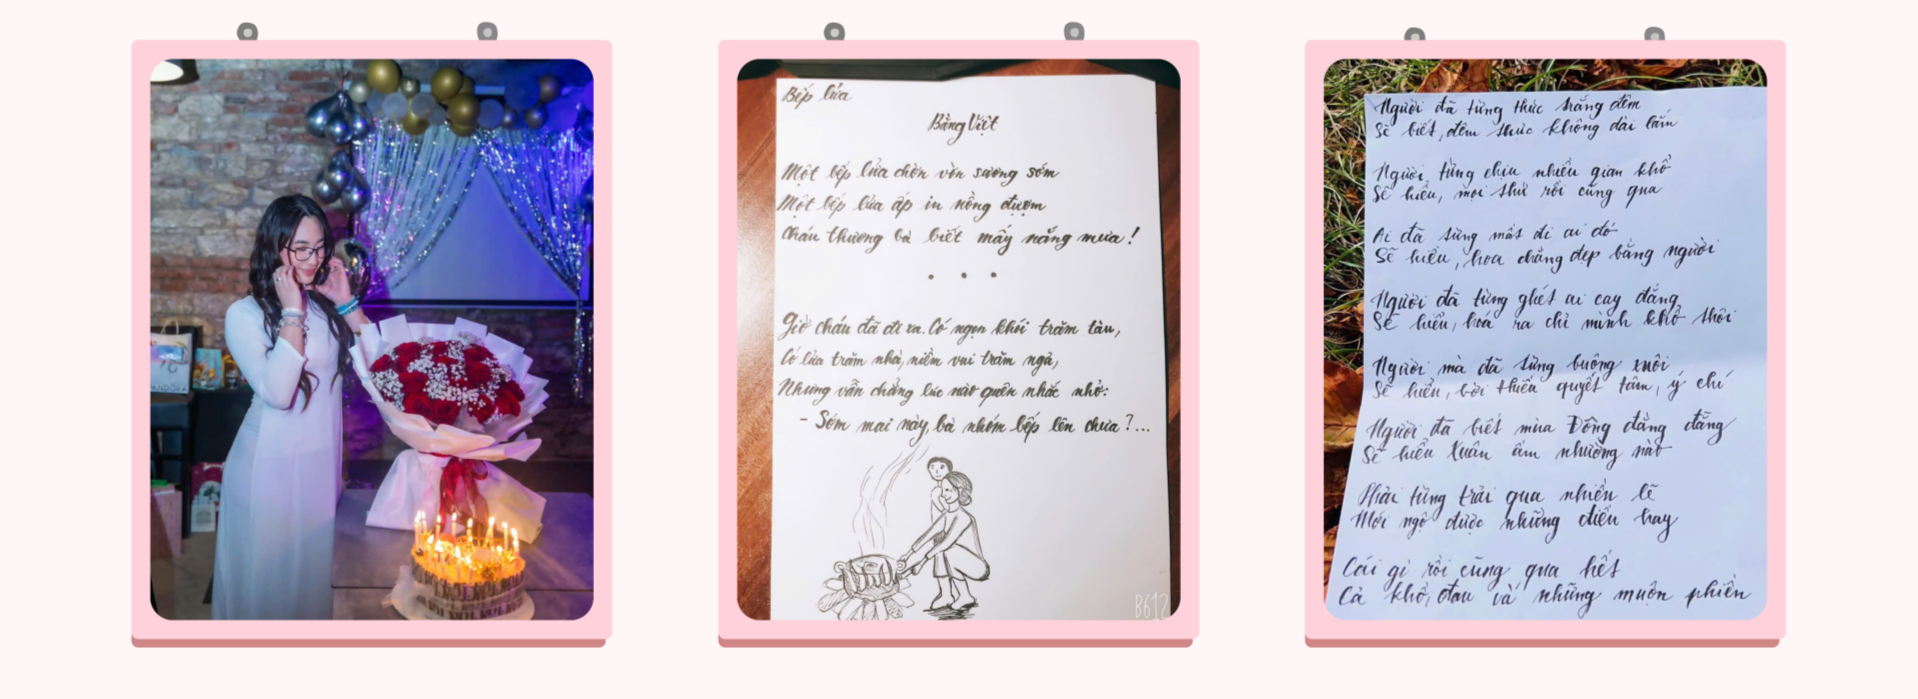 Bếp lửa
Bằng Việt
Một bếp lửa chờn vờn sương sớm
Một bếp lửa ấp iu nồng đượm
Cháu thương bà biết mấy nắng mưa!
. . .
Giờ cháu đã đi xa. Có ngọn khói trăm tàu,
Có lửa trăm nhà, niềm vui trăm ngả,
Nhưng vẫn chẳng lúc nào quên nhắc nhở:
- Sớm mai này, bà nhóm bếp lên chưa?...
B612
Người đã từng thức trắng đêm
Sẽ biết, đêm thực không dài lắm
Người từng chịu nhiều gian khổ
Sẽ hiểu, mọi thứ rồi cũng qua
Ai đã từng mất đi ai đó
Sẽ hiểu, hoa chẳng đẹp bằng người
Người đã từng ghét ai cay đắng
Sẽ hiểu, hoá ra chỉ mình khổ thôi
Người mà đã từng buông xuôi
Sẽ hiểu, bởi thiếu quyết tâm, ý chí
Người đã biết mùa Đông đằng đẵng
Sẽ hiểu Xuân ấm nhường nào
Phải từng trải qua nhiều lẽ
Mới ngộ được những điều hay
Cái gì rồi cũng qua hết
Cả khổ, đau và những muộn phiền